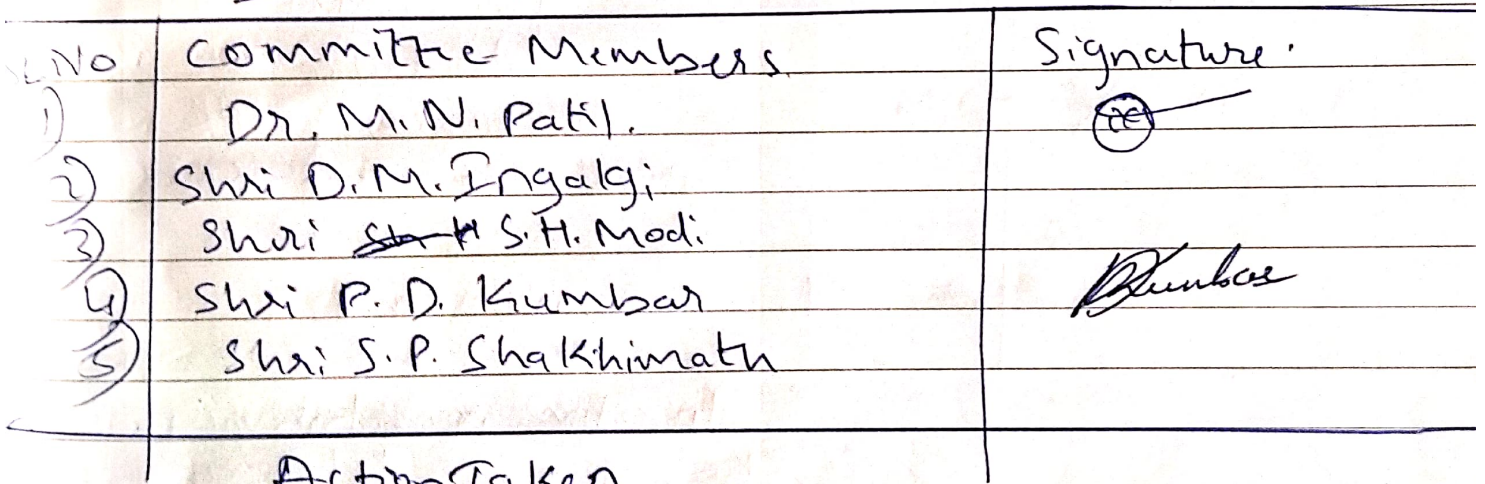 SL No Committee Members Signature.
1) Dr. M. N. Patil.
2) Shri D. M. Ingalgi
3) Shri S. H. Modi
4) Shri P. D. Kumbar Kumbar
5) Shri S. P. Shakhimath
Action Taken